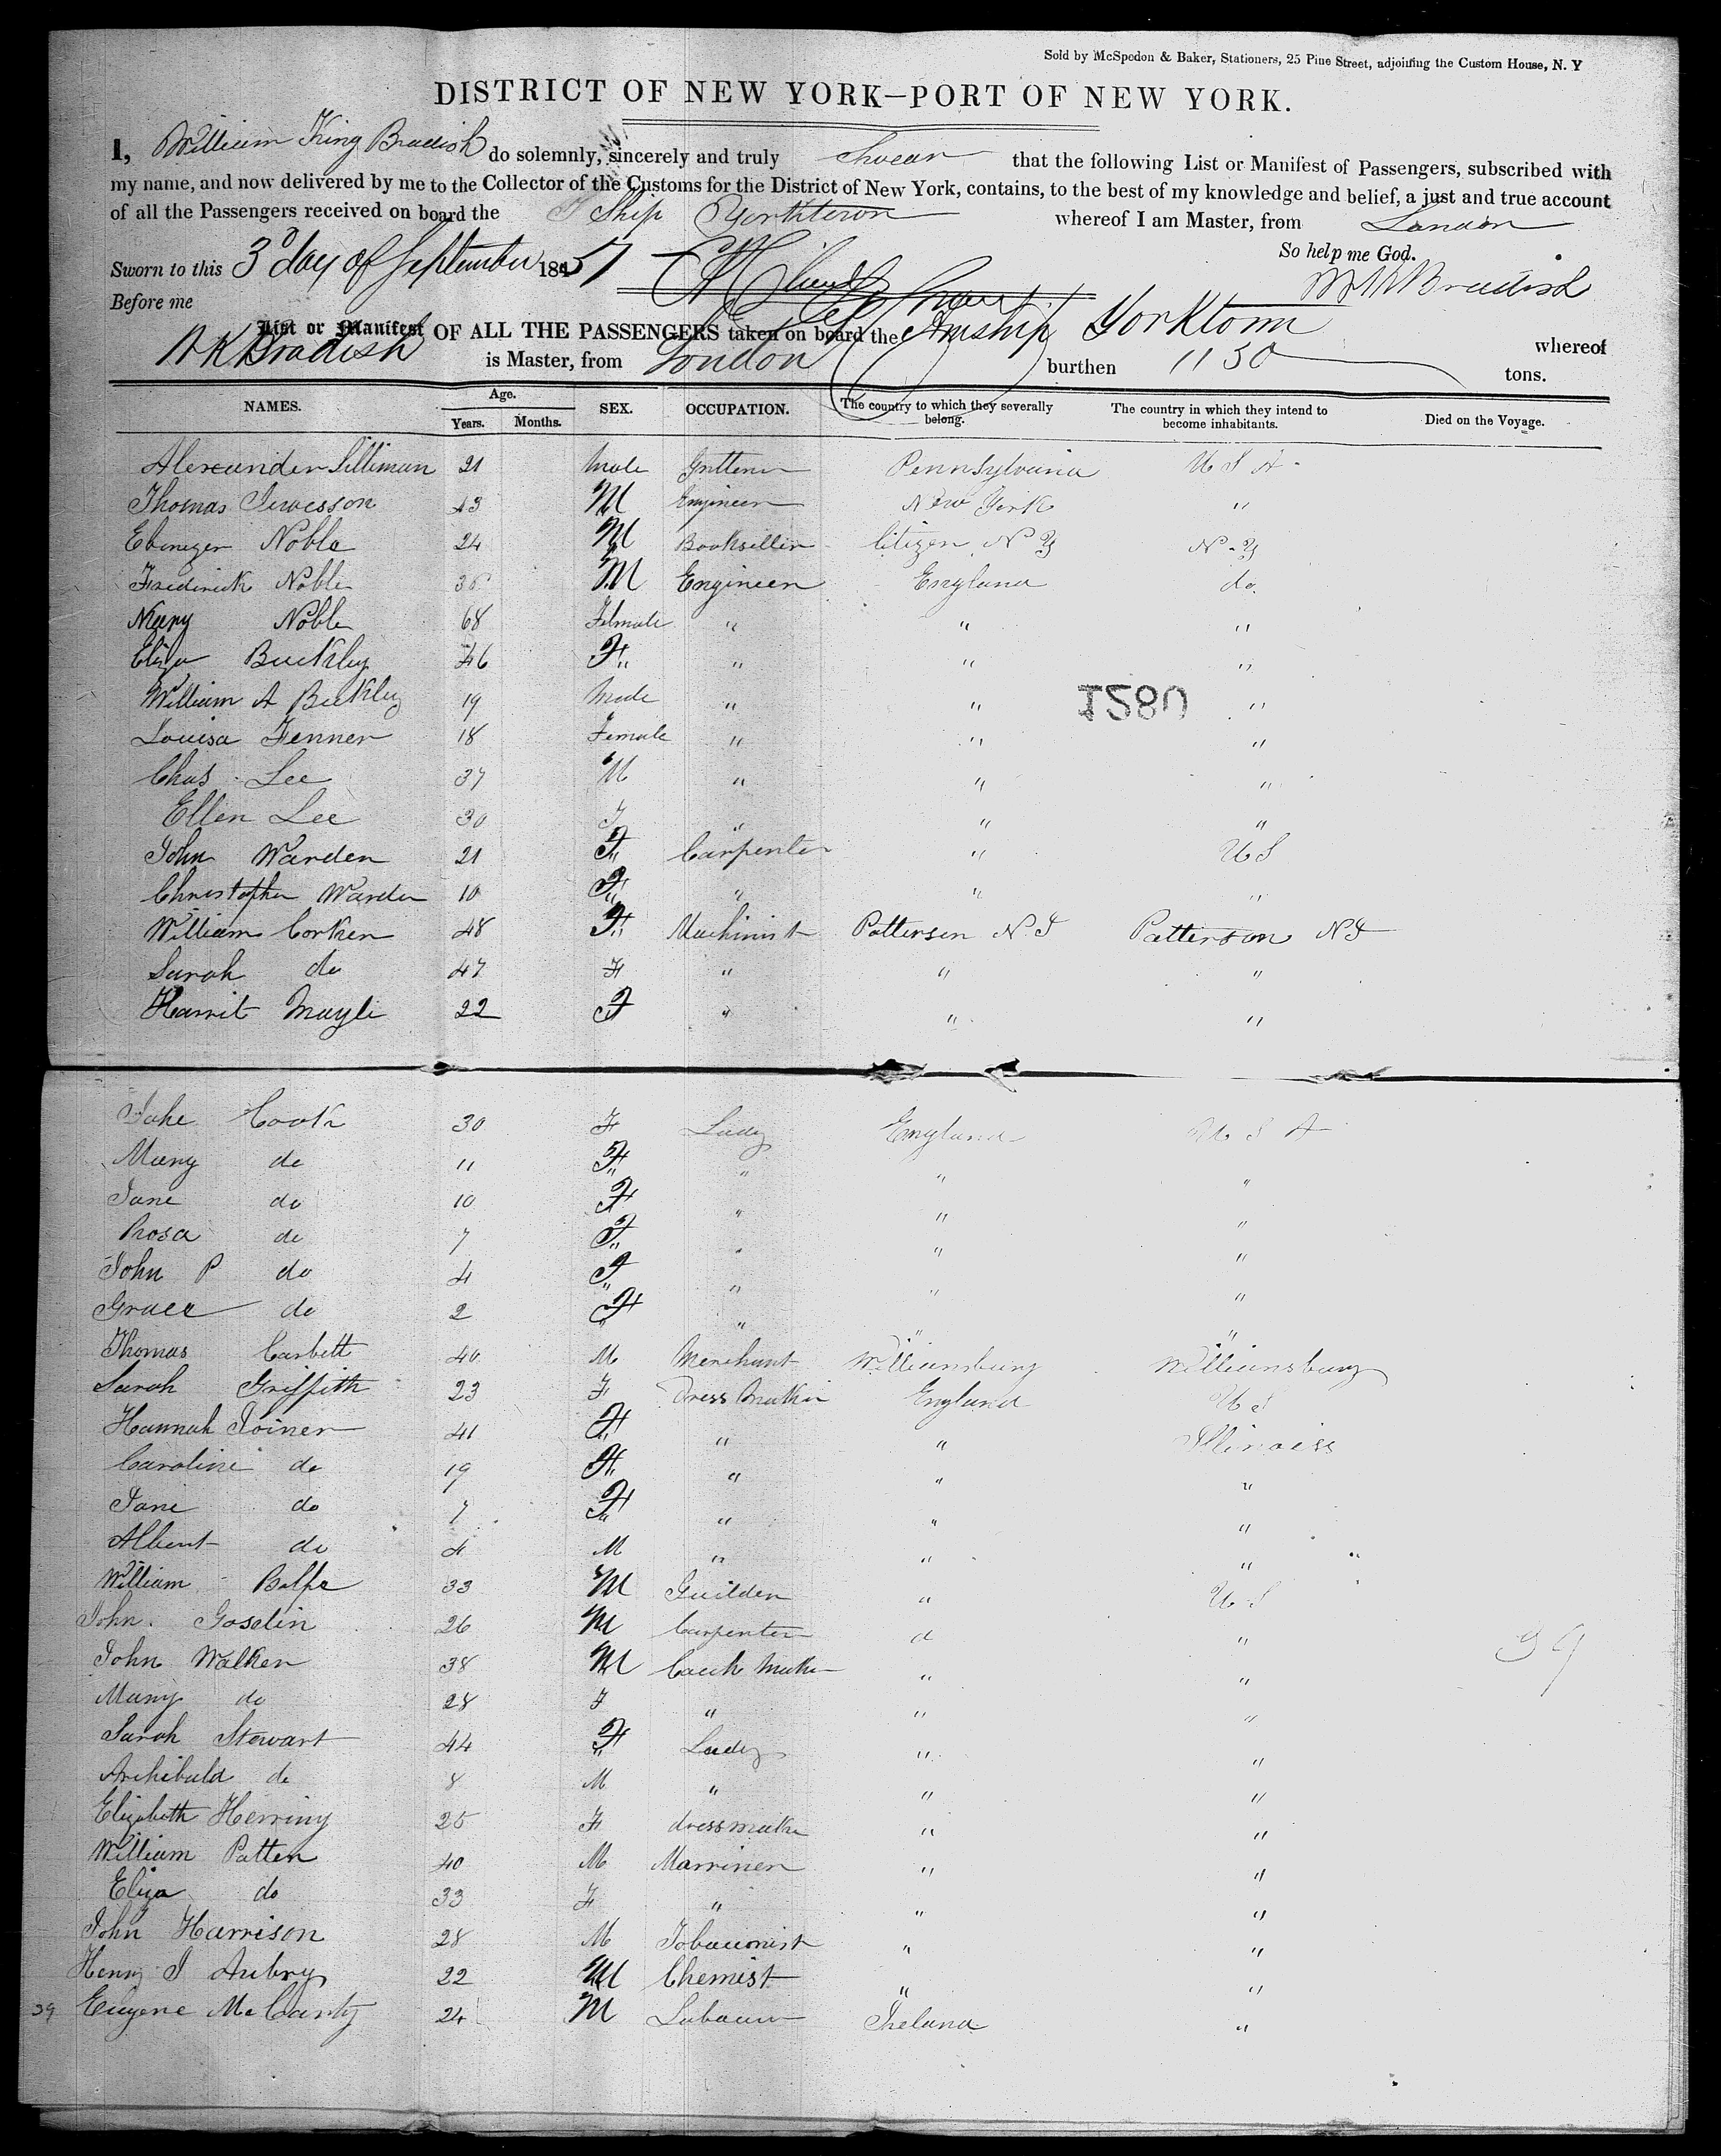 Sold by McSpedon & Baker, Stationers, 25 Pine Street, adjoining the Custom House, N. Y
DISTRICT OF NEW YORK—PORT OF NEW YORK.
I, William King Bradish do solemnly, sincerely and truly swear that the following List or Manifest of Passengers, subscribed with
my name, and now delivered by me to the Collector of the Customs for the District of New York, contains, to the best of my knowledge and belief, a just and true account
of all the Passengers received on board the Ship Yorktown whereof I am Master, from London
So help me God.
Sworn to this 3d day of September 1857
W K Bradish
Before me
List or Manifest OF ALL THE PASSENGERS taken on board the Yorktown whereof
W K Bradish is Master, from London burthen 1150 tons.
NAMES. Age. Years. Months. SEX. OCCUPATION. The country to which they severally belong. The country in which they intend to become inhabitants. Died on the Voyage.
Alexander Silliman 21 Male Pennsylvania U S A
Thomas 43 M Engineer New York "
Ebenezer Noble 24 M Bookseller Citizen N Y N. Y
Frederick Noble M Engineer England do.
Mary Noble 68 Female " " "
Eliza Buckley 46 F " " "
William A Buckley 19 Male " " "
1280
Louisa Fenner 18 Female " " "
Chas Lee 37 M " " "
Ellen Lee 30 F " " "
John Warden 21 F Carpenter " U S
Christopher Warden 10 F " " "
William Corken 48 F Machinist Patterson N. J Patterson N J
Sarah do 47 F " " "
Harrit Mayle 22 F " " "
Jane Cook 30 F Lady England U S A
Mary do 11 F " " "
Jane do 10 F " " "
Rosa do 7 F " " "
John P do 4 F " " "
Grace do 2 F " " "
Thomas Carbett 40 M Merchant Williamsburg Williamsburg
Sarah Griffith 23 F Dress Maker England U S
Hannah Joiner 41 F " " Illinoiss
Caroline do 19 F " " "
Jane do 7 F " " "
Albert do 4 M " " "
William Balfe 33 M Guilder " U S
John Goselin 26 M Carpenter " "
John Walker 38 M Coach Maker " "
39
Mary do 28 F " " "
Sarah Stewart 44 F Lady " "
Archibald do 8 M " " "
Elizabeth Herring 25 F dressmaker " "
William Patten 40 M Marriner " "
Eliza do 33 F " " "
John Harrison 28 M Tobacconist " "
Henry J Aubry 22 M Chemist " "
39 Eugene McCarty 24 M Labourer Ireland "